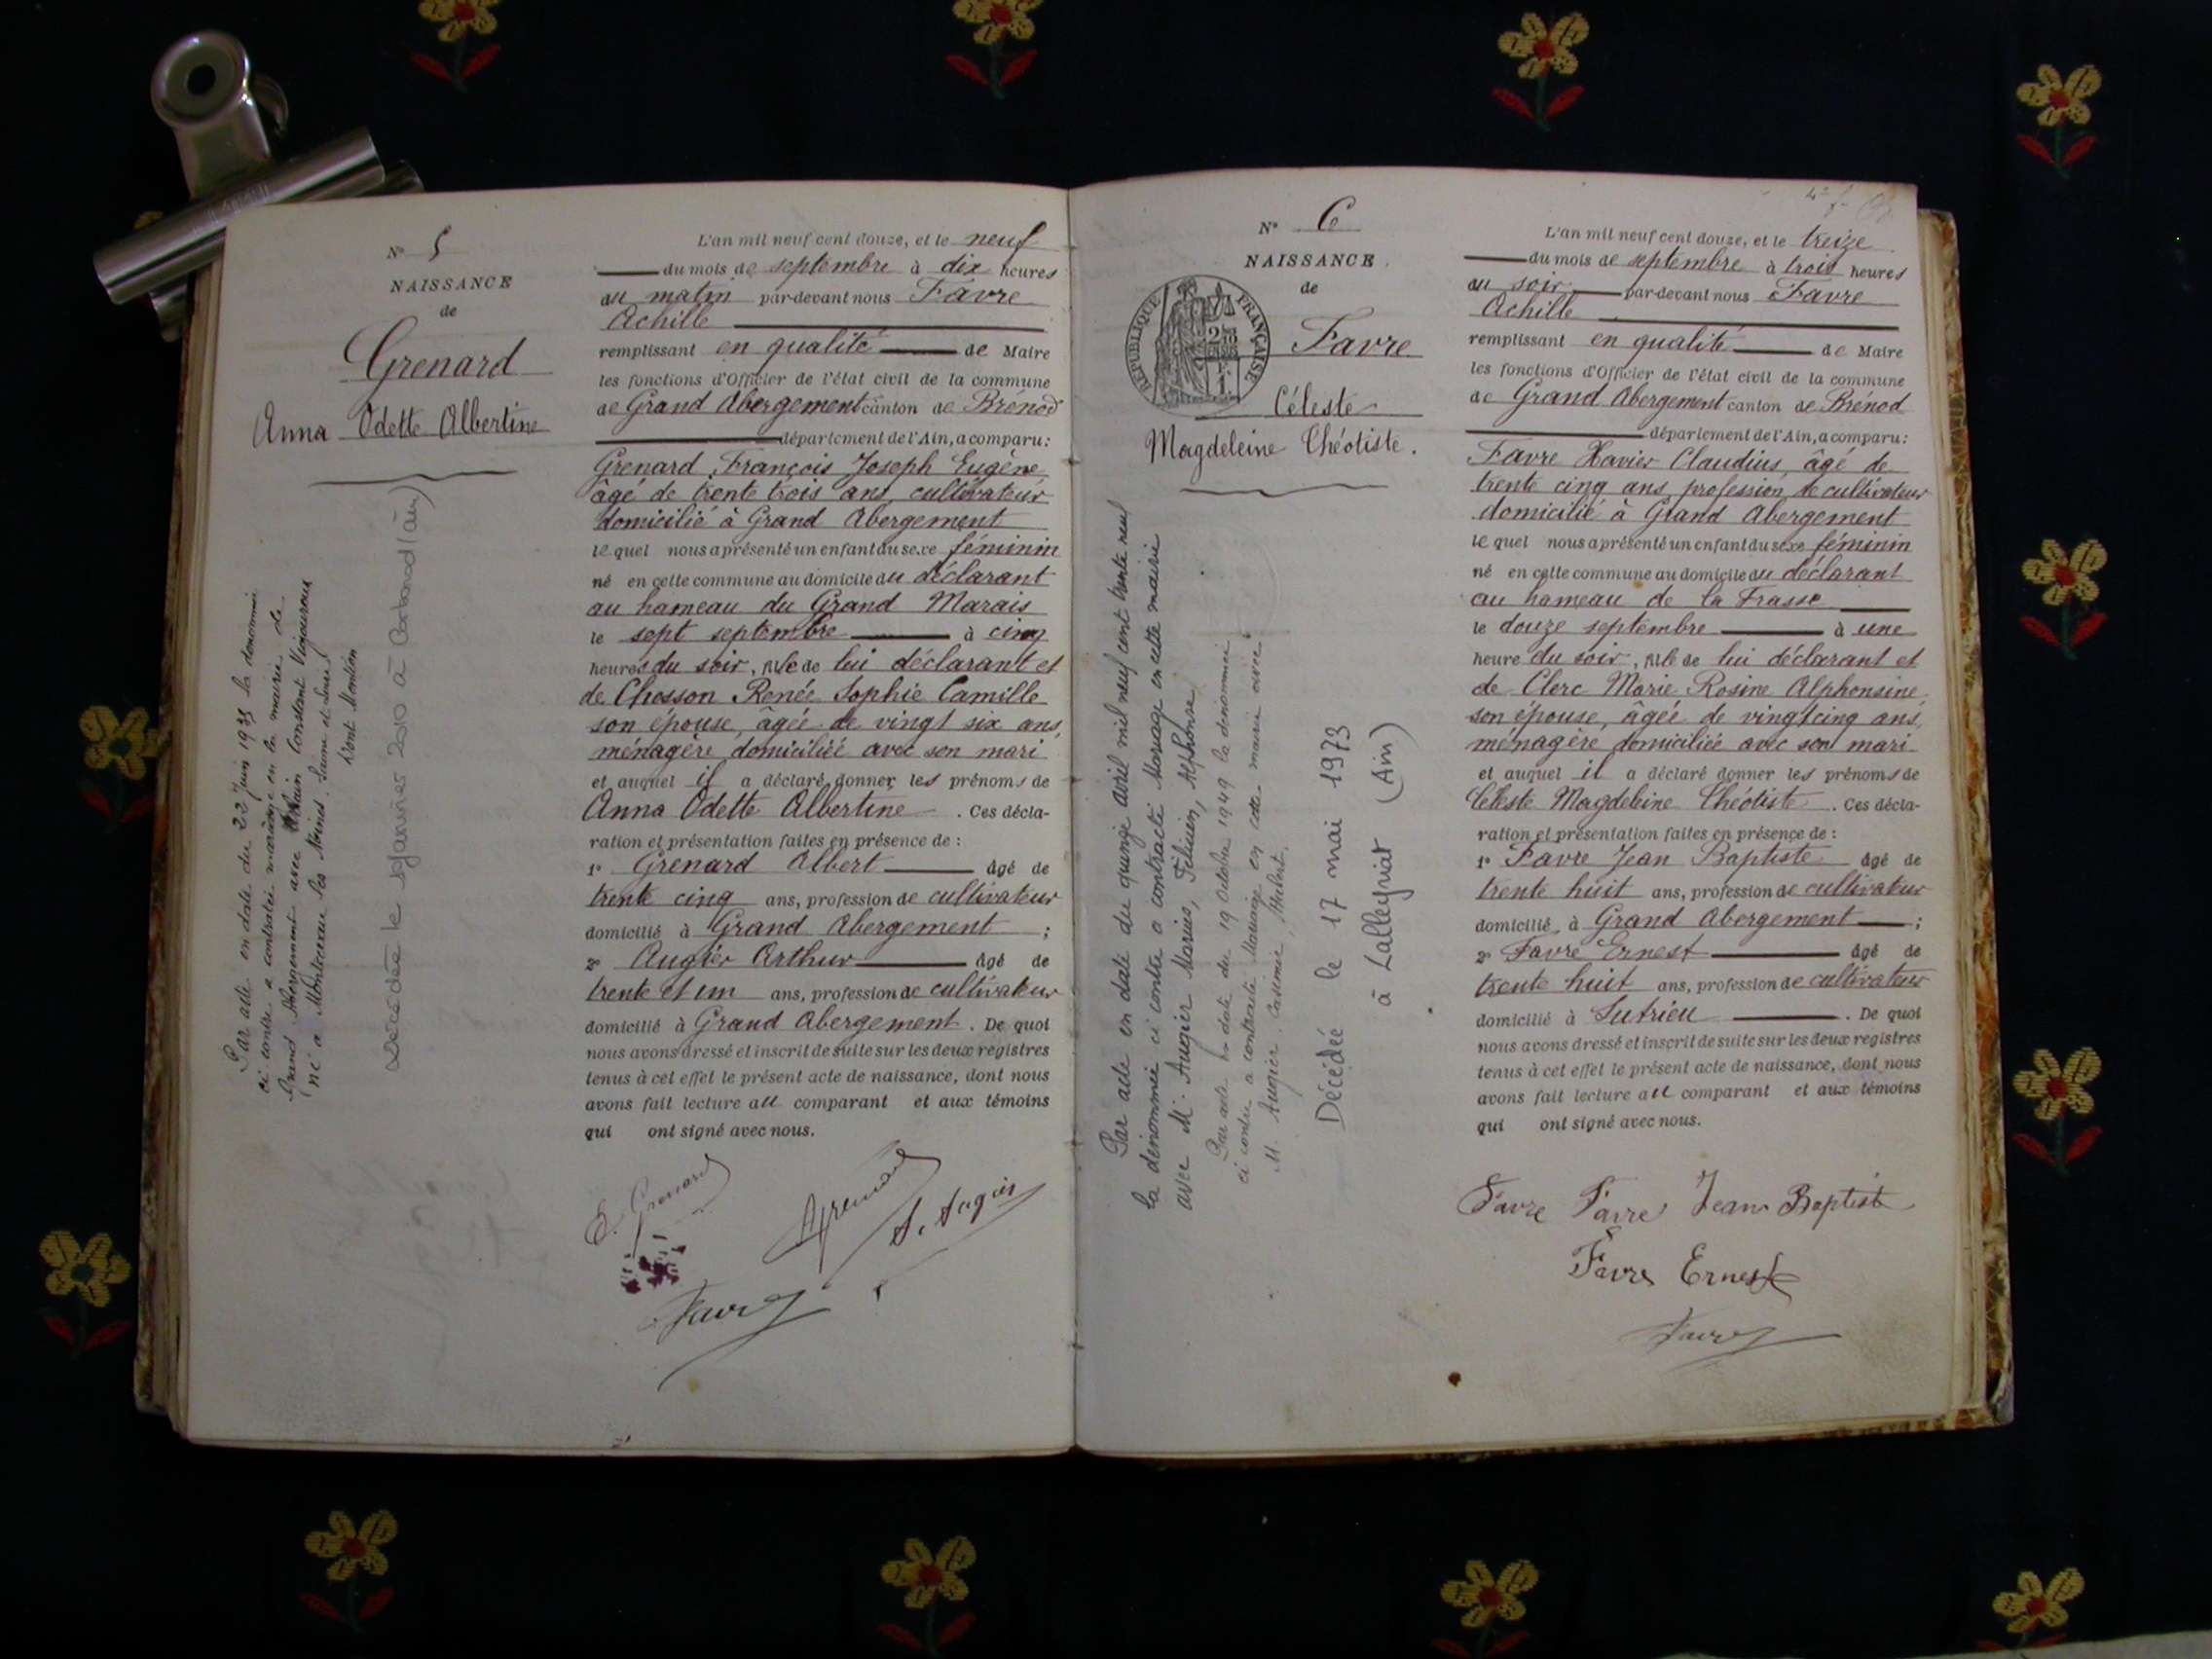 N° 5
NAISSANCE
de
Grenard
Anna Odette Albertine
Par acte en date du 22 Juin 1935 la dénommée
ci contre a contracté mariage en la mairie de
Grand Abergement avec Constant Vigoureux
né à Montceau les Mines, Saone et Loire
dont Mention
Décédée le janvier 2010 à Corbonod (Ain)
L'an mil neuf cent douze, et le neuf
du mois de septembre à dix heures
du matin par-devant nous Favre
Achille
remplissant en qualité de Maire
les fonctions d'Officier de l'état civil de la commune
de Grand Abergement canton de Brénod
département de l'Ain, a comparu :
Grenard François Joseph Eugène
âgé de trente trois ans, cultivateur
domicilié à Grand Abergement
le quel nous a présenté un enfant du sexe féminin
né en cette commune au domicile du déclarant
au hameau du Grand Marais
le sept septembre à cinq
heures du soir, fille de lui déclarant et
de Chosson Renée Sophie Camille
son épouse, âgée de vingt six ans,
ménagère domiciliée avec son mari
et auquel il a déclaré donner les prénoms de
Anna Odette Albertine . Ces décla-
ration et présentation faites en présence de :
1° Grenard Albert âgé de
trente cinq ans, profession de cultivateur
domicilié à Grand Abergement ;
2° Augier Arthur âgé de
trente et un ans, profession de cultivateur
domicilié à Grand Abergement . De quoi
nous avons dressé et inscrit de suite sur les deux registres
tenus à cet effet le présent acte de naissance, dont nous
avons fait lecture au comparant et aux témoins
qui ont signé avec nous.
E. Grenard
A Grenard
A. Augier
Favre
N° 6
NAISSANCE
de
RÉPUBLIQUE FRANÇAISE
Favre
Céleste
Magdeleine Théotiste.
Par acte en date du quinze avril mil neuf cent trente neuf
la dénommée ci contre a contracté Mariage en cette mairie
avec Mr. Augier Marius, Félicien, Alphonse
Par acte en date du 19 Octobre 1949 la dénommée
ci contre a contracté Mariage en cette mairie avec
M. Augier Casimir, Hubert.
Décédée le 17 mai 1973
à Lalleyriat (Ain)
L'an mil neuf cent douze, et le treize
du mois de septembre à trois heures
du soir par-devant nous Favre
Achille
remplissant en qualité de Maire
les fonctions d'Officier de l'état civil de la commune
de Grand Abergement canton de Brénod
département de l'Ain, a comparu :
Favre Xavier Claudius, âgé de
trente cinq ans, profession de cultivateur
domicilié à Grand Abergement
le quel nous a présenté un enfant du sexe féminin
né en cette commune au domicile du déclarant
au hameau de la Frasse
le douze septembre à une
heure du soir, fille de lui déclarant et
de Clerc Marie Rosine Alphonsine
son épouse, âgée de vingt cinq ans,
ménagère domiciliée avec son mari
et auquel il a déclaré donner les prénoms de
Céleste Magdeleine Théotiste . Ces décla-
ration et présentation faites en présence de :
1° Favre Jean Baptiste âgé de
trente huit ans, profession de cultivateur
domicilié à Grand Abergement ;
2° Favre Ernest âgé de
trente huit ans, profession de cultivateur
domicilié à Sutrieu . De quoi
nous avons dressé et inscrit de suite sur les deux registres
tenus à cet effet le présent acte de naissance, dont nous
avons fait lecture au comparant et aux témoins
qui ont signé avec nous.
Favre Favre Jean Baptiste
Favre Ernest
Favre